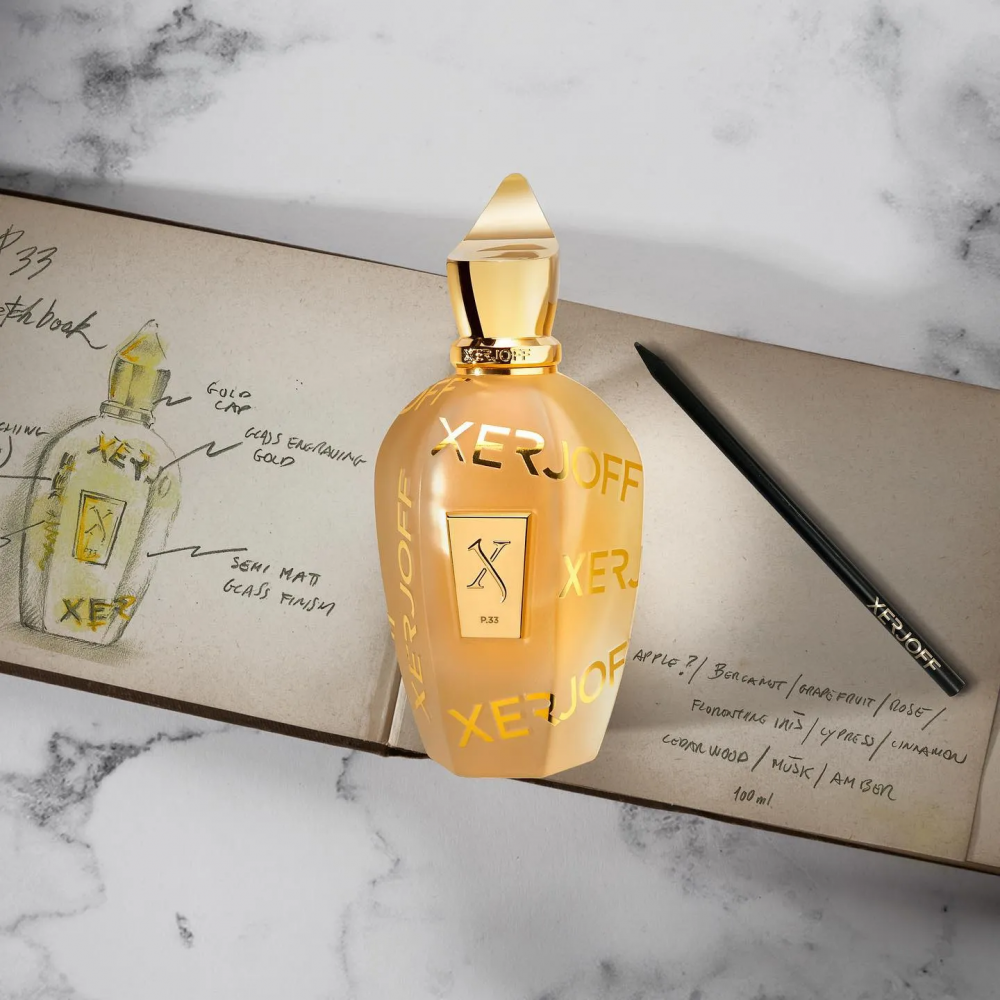 P 33
Sketchbook
GOLD
CAP
GLASS ENGRAVING
GOLD
SEMI MATT
GLASS FINISH
XERJ
X
P.33
XER
XERJOFF
OFF
XERJOFF
XERJOFF
XERJ
X
P.33
XERJOF
XERJOFF
APPLE ? / BERGAMOT / GRAPEFRUIT / ROSE /
FLORENTINE IRIS / CYPRESS / CINNAMON
CEDARWOOD / MUSK / AMBER
100 ml